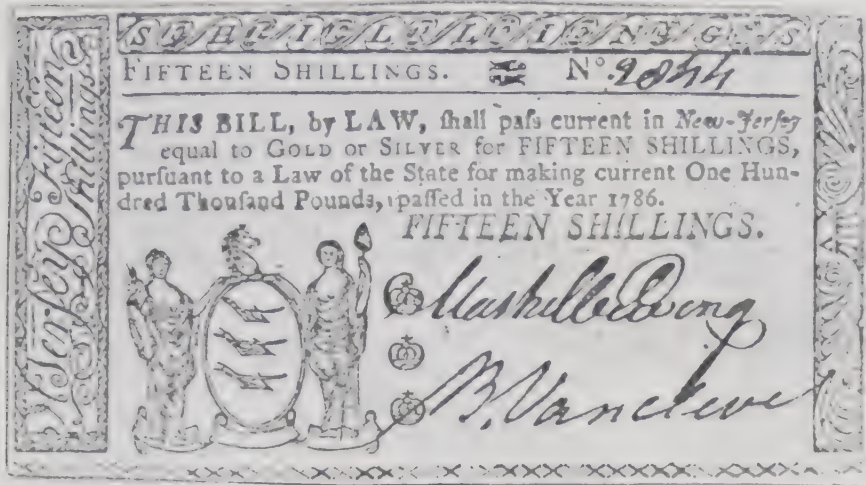 SHILLINGS
Jersey Fifteen
Shillings.
FIFTEEN SHILLINGS. No. 9844
THIS BILL, by LAW, ſhall paſs current in New-Jerſey
equal to GOLD or SILVER for FIFTEEN SHILLINGS,
purſuant to a Law of the State for making current One Hun-
dred Thouſand Pounds, paſſed in the Year 1786.
FIFTEEN SHILLINGS.
Maskell Ewing
B. Vancleve